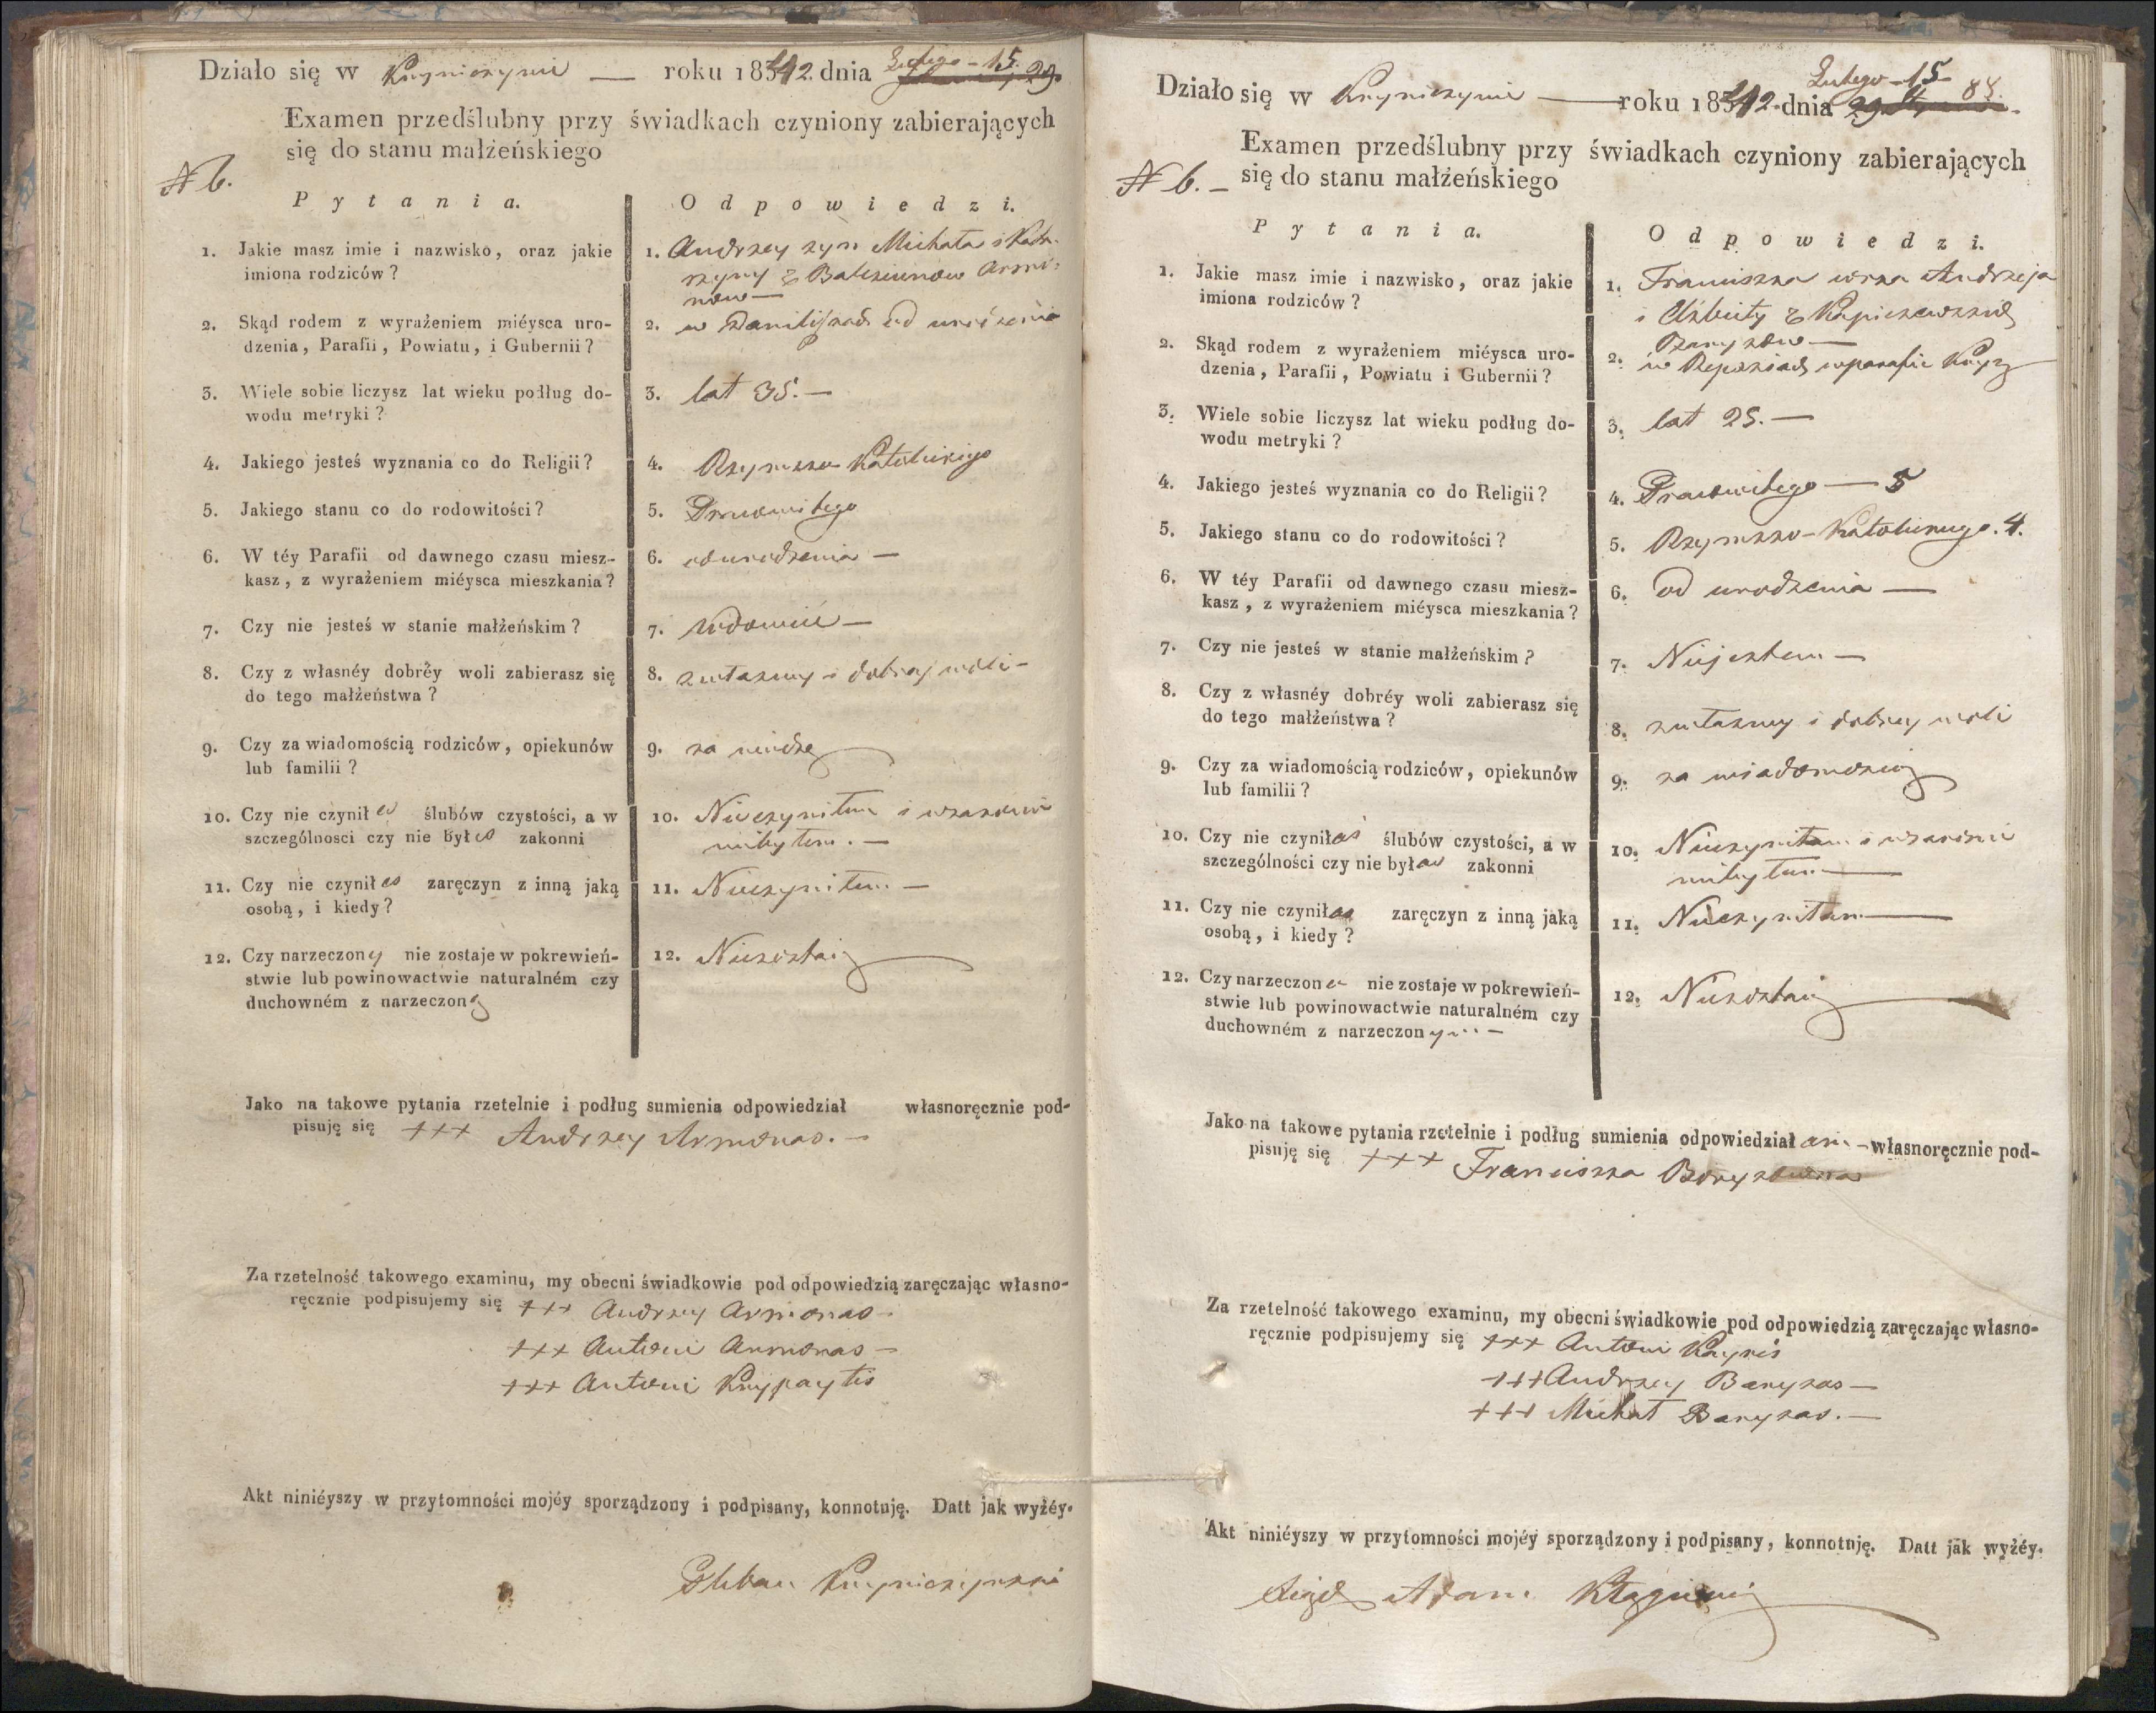 Działo się w Knyniczynie — roku 1842 dnia Lutego - 15.
Examen przedślubny przy świadkach czyniony zabierających
się do stanu małżeńskiego
N 6.
Pytania.
Odpowiedzi.
1. Jakie masz imie i nazwisko, oraz jakie
imiona rodziców?
1. Andrzey syn Michała i Kata-
rzyny z
2. Skąd rodem z wyrażeniem miéysca uro-
dzenia, Parafii, Powiatu, i Gubernii?
2. w od urodzenia
3. Wiele sobie liczysz lat wieku podług do-
wodu metryki?
3. lat 35. —
4. Jakiego jesteś wyznania co do Religii?
4. Rzymsko Katolickiego
5. Jakiego stanu co do rodowitości?
5. Prawowitego
6. W téy Parafii od dawnego czasu miesz-
kasz, z wyrażeniem miéysca mieszkania?
6. od urodzenia —
7. Czy nie jesteś w stanie małżeńskim?
7. Wdowiec —
8. Czy z własnéy dobréy woli zabierasz się
do tego małżeństwa?
8. z własney i dobrey woli -
9. Czy za wiadomością rodziców, opiekunów
lub familii?
9. za wiedzą
10. Czy nie czynił eś ślubów czystości, a w
szczególnosci czy nie był eś zakonni
10. Nieczyniłem i w zakonie
niebyłem. —
11. Czy nie czynił eś zaręczyn z inną jaką
osobą, i kiedy?
11. Nieczyniłem —
12. Czy narzeczony nie zostaje w pokrewień-
stwie lub powinowactwie naturalném czy
duchowném z narzeczoną
12. Niezostaię
Jako na takowe pytania rzetelnie i podług sumienia odpowiedział własnoręcznie pod-
pisuję się +++ Andrzey Armonas. —
Za rzetelność takowego examinu, my obecni świadkowie pod odpowiedzią zaręczając własno-
ręcznie podpisujemy się +++ Andrzey Armonas -
+++ Antoni Armonas —
+++ Antoni
Akt niniéyszy w przytomności mojéy sporządzony i podpisany, konnotuję. Datt jak wyżéy.
Pleban
Działo się w Knyniczynie — roku 1842. dnia Lutego - 15 88.
Examen przedślubny przy świadkach czyniony zabierających
się do stanu małżeńskiego
N 6. —
Pytania.
Odpowiedzi.
1. Jakie masz imie i nazwisko, oraz jakie
imiona rodziców?
1. Franciszka córka Andrzeja
i Elżbiety z
2. Skąd rodem z wyrażeniem miéysca uro-
dzenia, Parafii, Powiatu i Gubernii?
2. w w parafii
3. Wiele sobie liczysz lat wieku podług do-
wodu metryki?
3. lat 25. —
4. Jakiego jesteś wyznania co do Religii?
4. Prawowitego — 5
5. Jakiego stanu co do rodowitości?
5. Rzymsko-Katolickiego. 4.
6. W téy Parafii od dawnego czasu miesz-
kasz, z wyrażeniem miéysca mieszkania?
6. od urodzenia —
7. Czy nie jesteś w stanie małżeńskim?
7. Niejestem —
8. Czy z własnéy dobréy woli zabierasz się
do tego małżeństwa?
8. z własney i dobrey woli
9. Czy za wiadomością rodziców, opiekunów
lub familii?
9. za wiadomością
10. Czy nie czynił aś ślubów czystości, a w
szczególności czy nie był aś zakonni
10. Nieczyniłam i w zakonie
niebyłam —
11. Czy nie czynił aś zaręczyn z inną jaką
osobą, i kiedy?
11. Nieczyniłam —
12. Czy narzeczona nie zostaje w pokrewień-
stwie lub powinowactwie naturalném czy
duchowném z narzeczonym —
12. Niezostaię
Jako na takowe pytania rzetelnie i podług sumienia odpowiedział am — własnoręcznie pod-
pisuję się +++ Franciszka
Za rzetelność takowego examinu, my obecni świadkowie pod odpowiedzią zaręczając własno-
ręcznie podpisujemy się +++ Antoni
+++ Andrzey Baryzas —
+++ Michał Baryzas. —
Akt niniéyszy w przytomności mojéy sporządzony i podpisany, konnotuję. Datt jak wyżéy.
Xiądz Adam